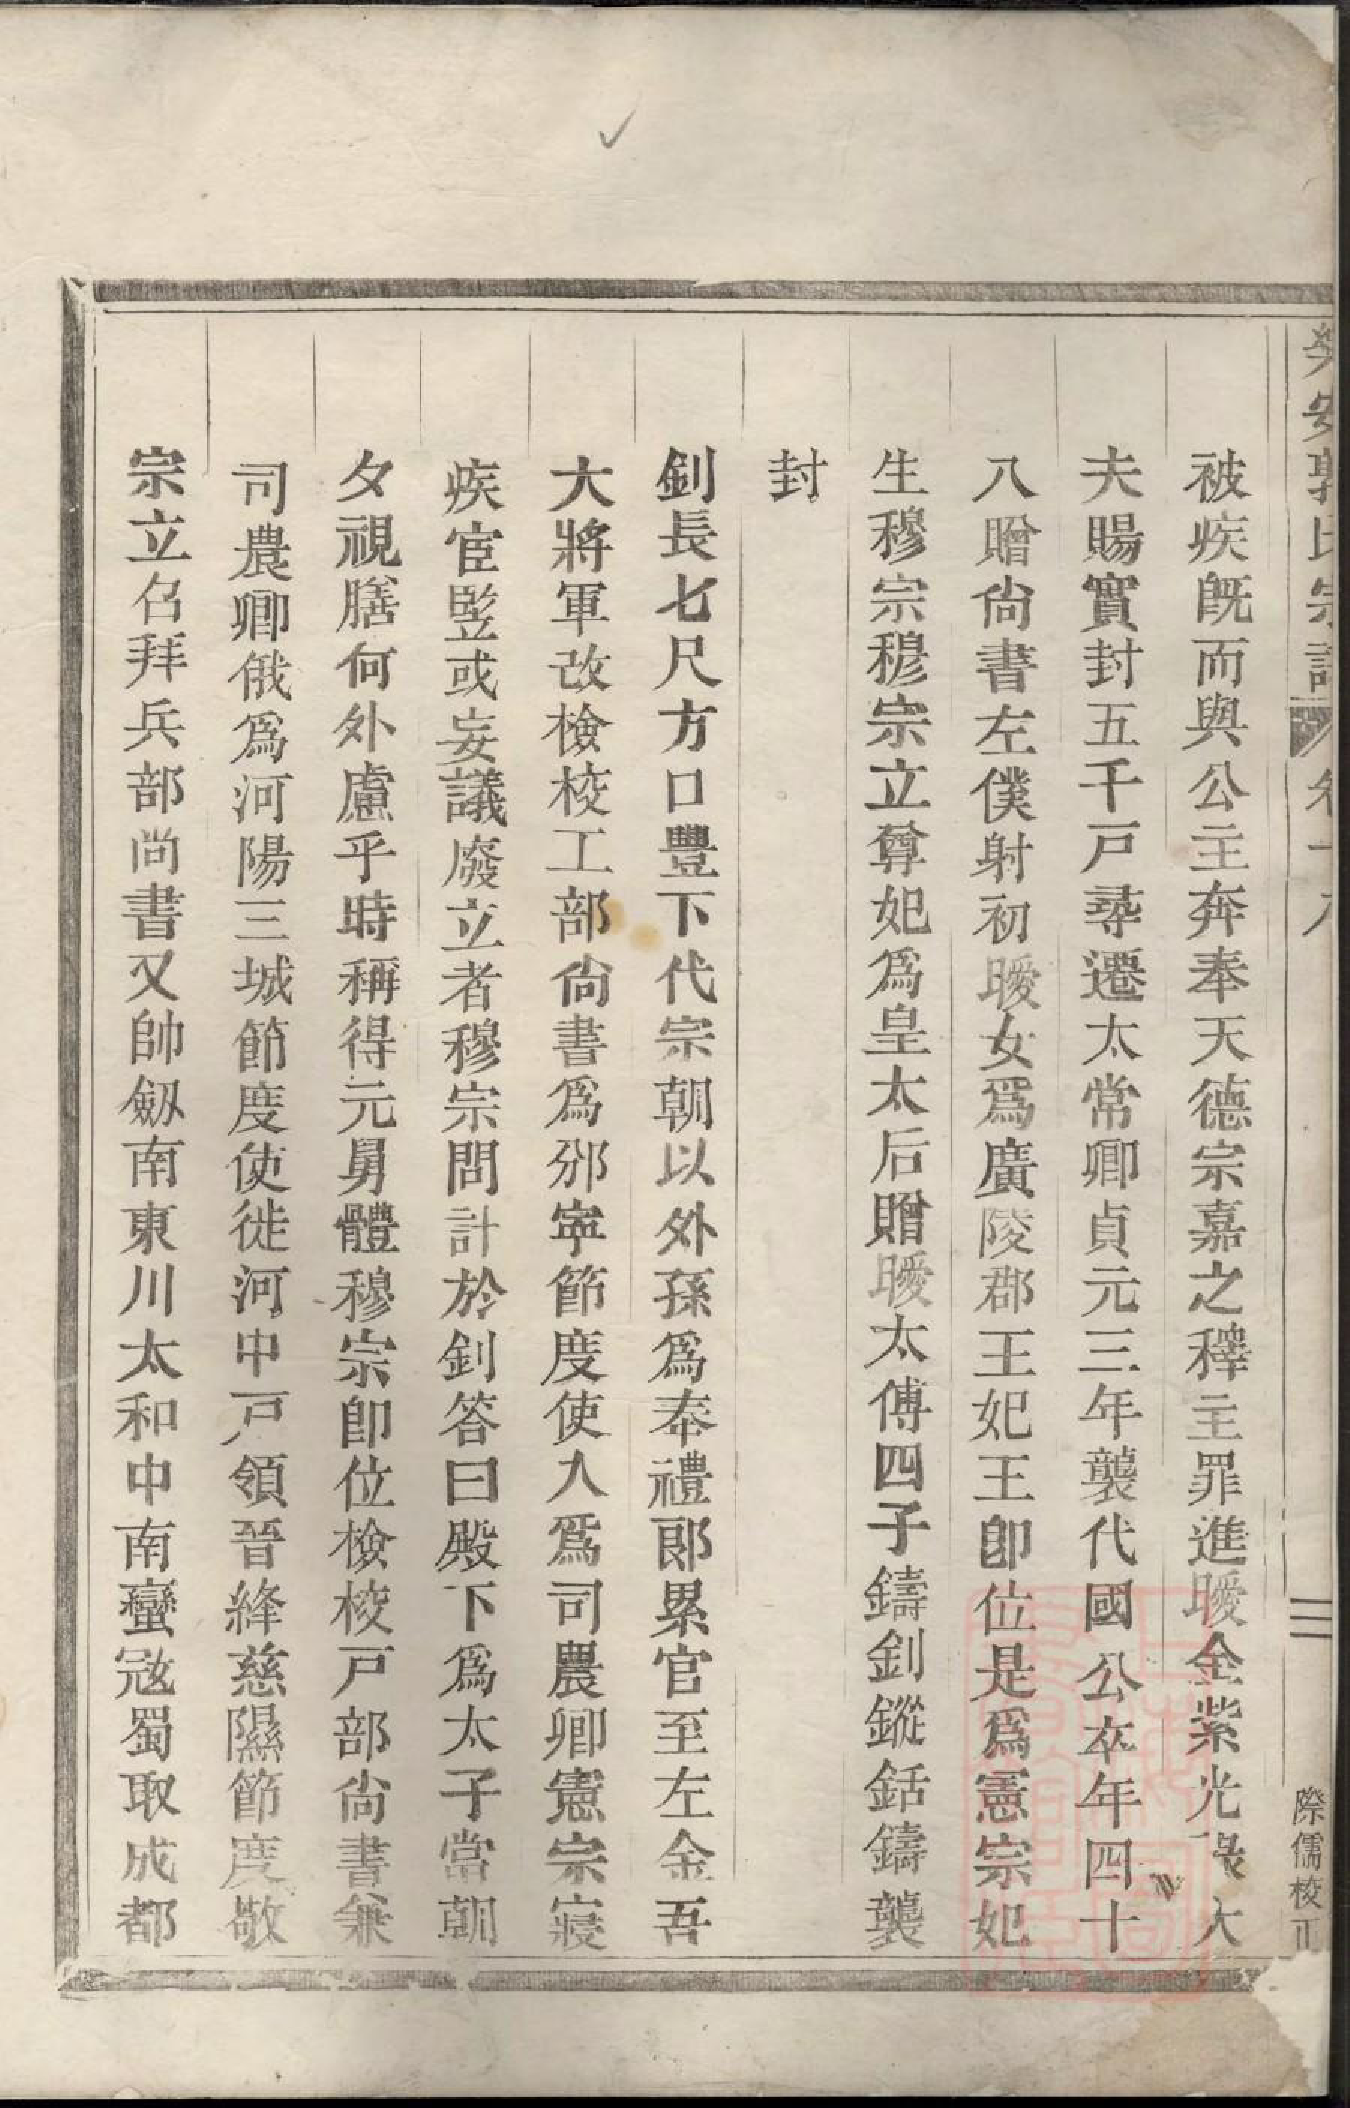 郭氏宗譜
際儒校正
被疾旣而與公主奔奉天德宗嘉之釋主罪進曖金紫光祿大
夫賜實封五千戸尋遷太常卿貞元三年襲代國公卒年四十
八贈尙書左僕射初曖女爲廣陵郡王妃王卽位是爲憲宗妃
生穆宗穆宗立尊妃爲皇太后贈曖太傅四子鑄釗鏦銛鑄襲
封
釗長七尺方口豐下代宗朝以外孫爲奉禮郞累官至左金吾
大將軍改檢校工部尙書爲邠寧節度使入爲司農卿憲宗寢
疾宦監或妄議廢立者穆宗問計於釗答曰殿下爲太子當朝
夕視膳何外慮乎時稱得元舅體穆宗卽位檢校戸部尙書兼
司農卿俄爲河陽三城節度使徙河中尸領晉絳慈隰節度敬
宗立召拜兵部尙書又帥劔南東川太和中南蠻冦蜀取成都